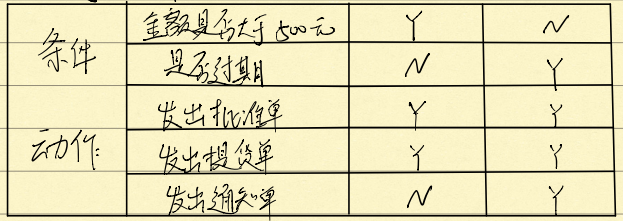 条件 金额是否大于500元 Y N
是否过期 N Y
动作 发出批准单 Y Y
发出提货单 Y Y
发出通知单 N Y